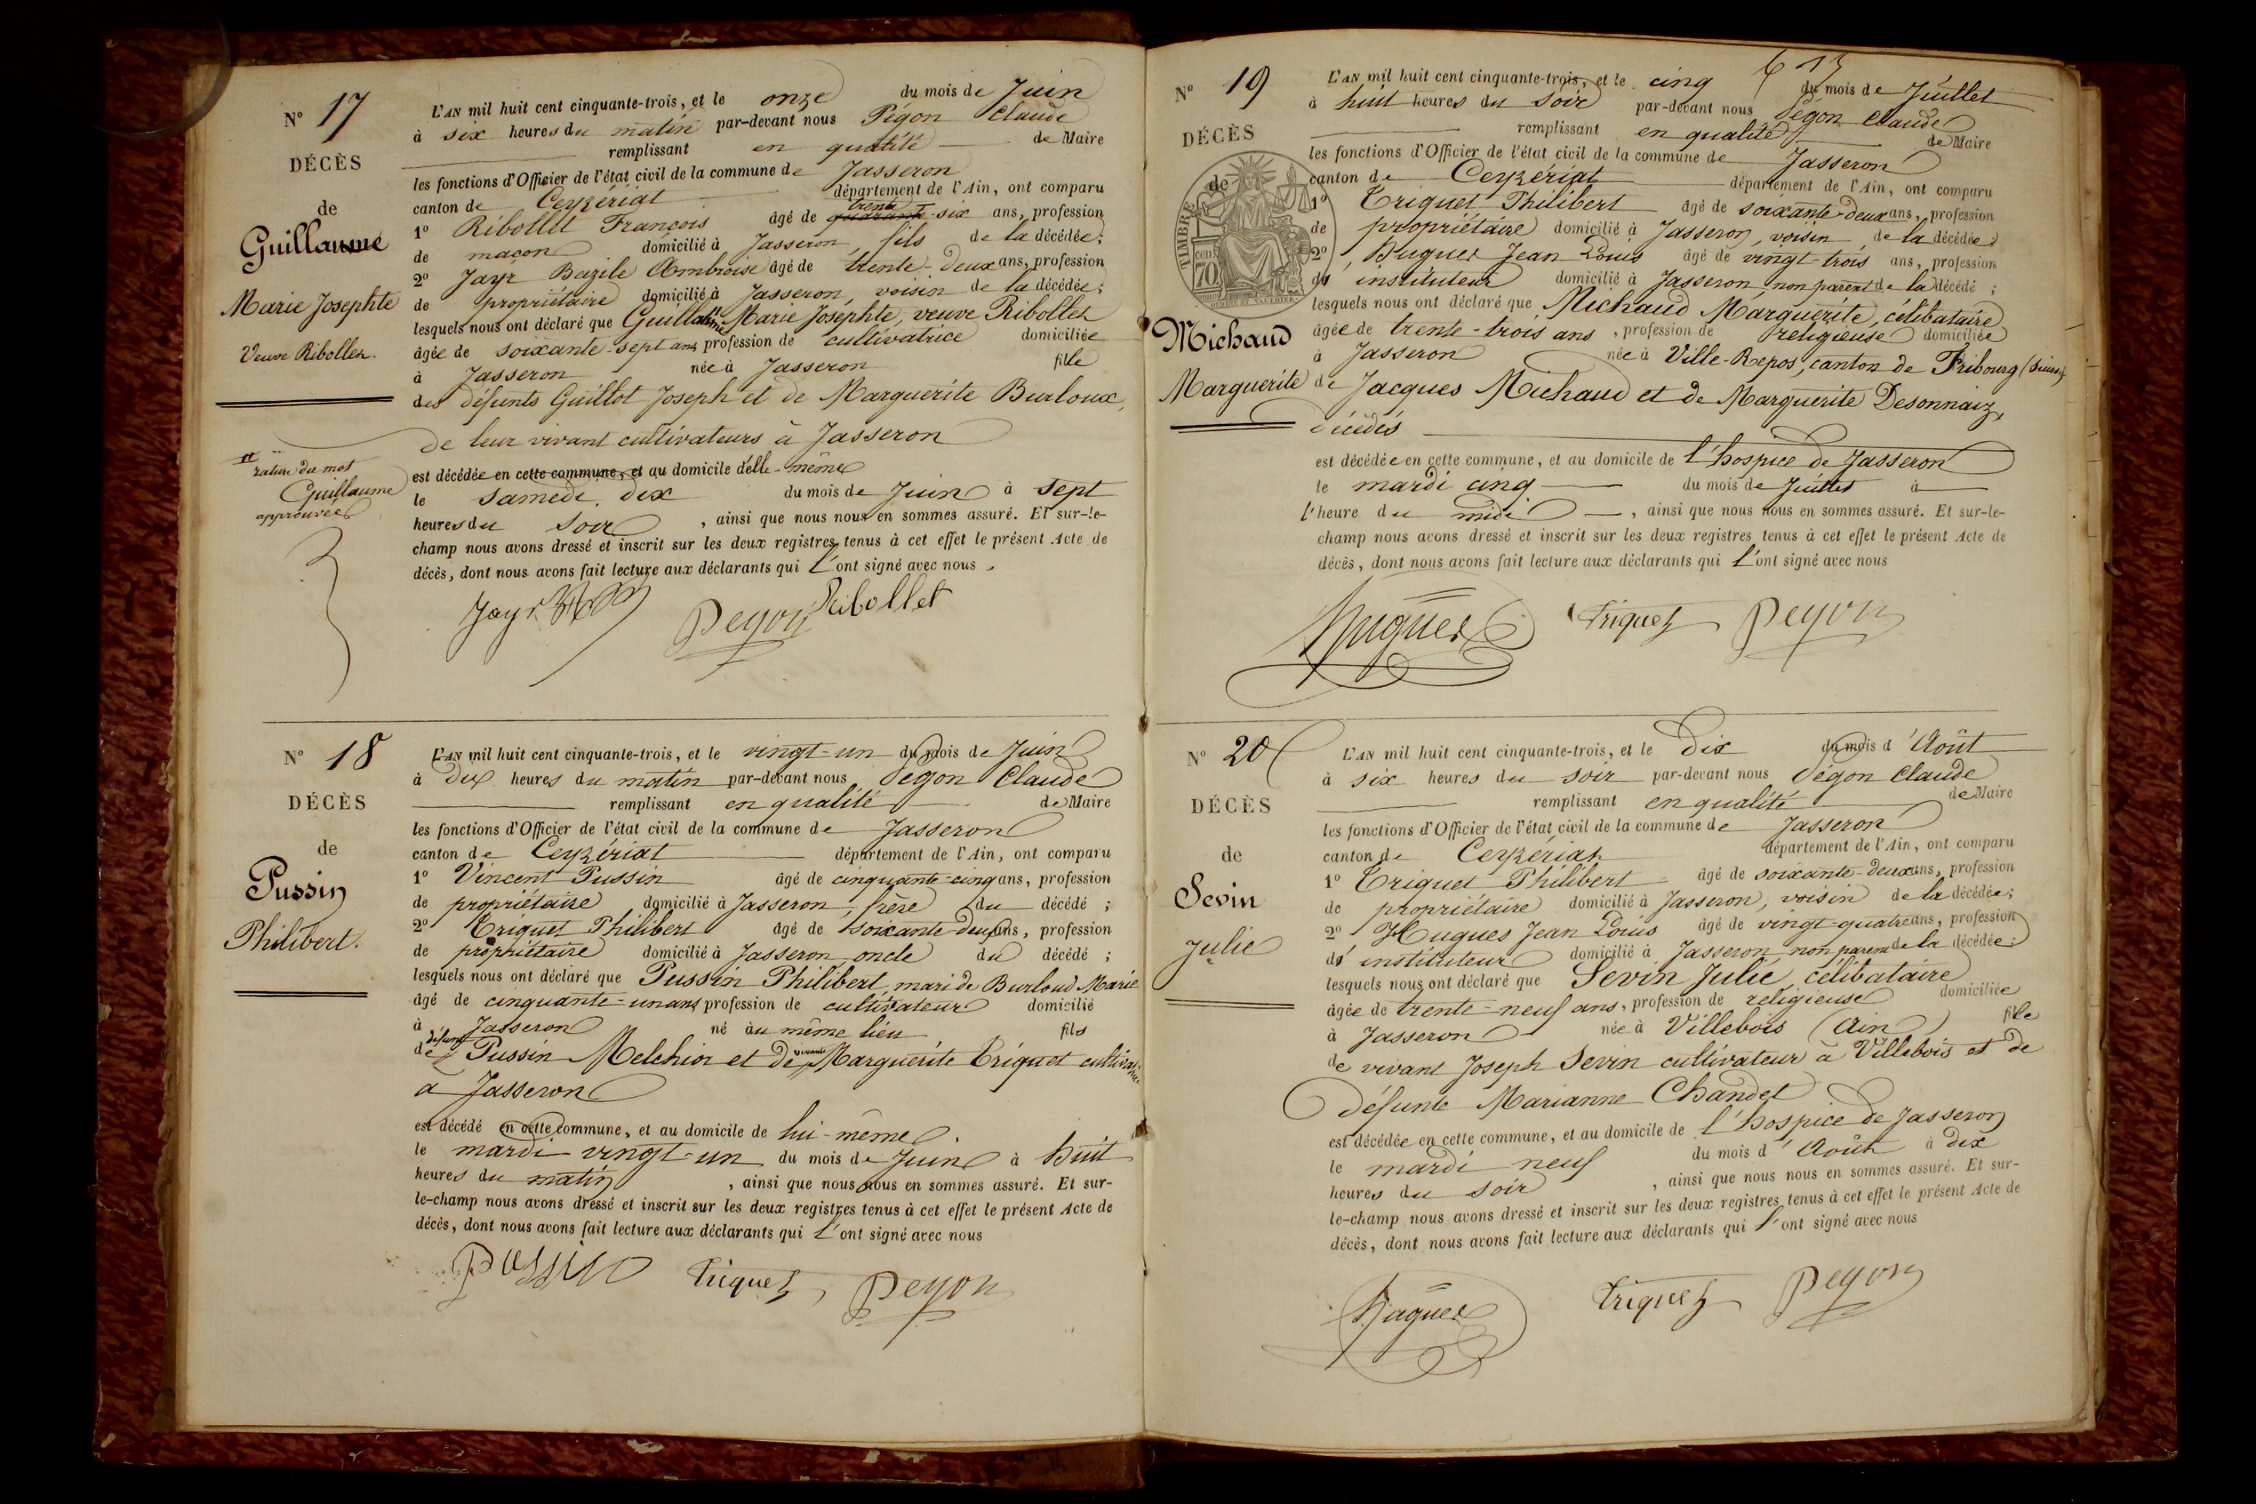 N° 17
DÉCÈS
de
Guillaume
Marie Josephte
Veuve Ribollet.
rature du mot
Guillaume
approuvée
L'AN mil huit cent cinquante-trois, et le onze du mois de Juin
à six heures du matin par-devant nous Pégon Claude
remplissant en qualité de Maire
les fonctions d'Officier de l'état civil de la commune de Jasseron
canton de Ceyzériat département de l'Ain, ont comparu
1° Ribollet François âgé de quarante trente-six ans, profession
de maçon domicilié à Jasseron, fils de la décédée;
2° Jayr Bazile Ambroise âgé de trente-deux ans, profession
de propriétaire domicilié à Jasseron, voisin de la décédée;
lesquels nous ont déclaré que Guillaume Marie Josephte, veuve Ribollet
âgée de soixante-sept ans profession de cultivatrice domiciliée
à Jasseron née à Jasseron fille
des défunts Guillot Joseph et de Marguerite Burloux,
de leur vivant cultivateurs à Jasseron
est décédée en cette commune, et au domicile d'elle-même
le samedi dix du mois de Juin à sept
heures du soir, ainsi que nous nous en sommes assuré. Et sur-le-
champ nous avons dressé et inscrit sur les deux registres tenus à cet effet le présent Acte de
décès, dont nous avons fait lecture aux déclarants qui l'ont signé avec nous.
Jayr Pegon Ribollet
N° 18
DÉCÈS
de
Pussin
Philibert.
L'AN mil huit cent cinquante-trois, et le vingt-un du mois de Juin
à dix heures du matin par-devant nous Pégon Claude
remplissant en qualité de Maire
les fonctions d'Officier de l'état civil de la commune de Jasseron
canton de Ceyzériat département de l'Ain, ont comparu
1° Vincent Pussin âgé de cinquante-cinq ans, profession
de propriétaire domicilié à Jasseron, frère du décédé;
2° Triquet Philibert âgé de soixante-deux ans, profession
de propriétaire domicilié à Jasseron, oncle du décédé;
lesquels nous ont déclaré que Pussin Philibert, mari de Burloud Marie
âgé de cinquante-un ans profession de cultivateur domicilié
à Jasseron né au même lieu fils
de défunt Pussin Melchior et de vivante Marguerite Triquet cultivatrice
à Jasseron
est décédé en cette commune, et au domicile de lui-même.
le mardi vingt-un du mois de Juin à huit
heures du matin, ainsi que nous nous en sommes assuré. Et sur-
le-champ nous avons dressé et inscrit sur les deux registres tenus à cet effet le présent Acte de
décès, dont nous avons fait lecture aux déclarants qui l'ont signé avec nous
Pussin Triquet Pegon
N° 19
DÉCÈS
de
TIMBRE
70
Michaud
Marguerite
L'AN mil huit cent cinquante-trois, et le cinq du mois de Juillet
à huit heures du soir par-devant nous Pégon Claude
remplissant en qualité de Maire
les fonctions d'Officier de l'état civil de la commune de Jasseron
canton de Ceyzériat département de l'Ain, ont comparu
1° Triquet Philibert âgé de soixante-deux ans, profession
de propriétaire domicilié à Jasseron, voisin de la décédée;
2° Hugues Jean Louis âgé de vingt-trois ans, profession
d'instituteur domicilié à Jasseron non parent de la décédé;
lesquels nous ont déclaré que Michaud Marguerite, célibataire
âgée de trente-trois ans, profession de religieuse domiciliée
à Jasseron née à Ville-Repos, canton de Fribourg (Suisse)
de Jacques Michaud et de Marguerite Desonnaiz,
décédés
est décédée en cette commune, et au domicile de l'hospice de Jasseron
le mardi cinq du mois de Juillet à
l'heure du midi, ainsi que nous nous en sommes assuré. Et sur-le-
champ nous avons dressé et inscrit sur les deux registres tenus à cet effet le présent Acte de
décès, dont nous avons fait lecture aux déclarants qui l'ont signé avec nous
Hugues Triquet Pegon
N° 20
DÉCÈS
de
Sevin
Julie
L'AN mil huit cent cinquante-trois, et le dix du mois d'Août
à six heures du soir par-devant nous Pégon Claude
remplissant en qualité de Maire
les fonctions d'Officier de l'état civil de la commune de Jasseron
canton de Ceyzériat département de l'Ain, ont comparu
1° Triquet Philibert âgé de soixante-deux ans, profession
de propriétaire domicilié à Jasseron, voisin de la décédée;
2° Hugues Jean Louis âgé de vingt-quatre ans, profession
d'instituteur domicilié à Jasseron non parent de la décédée;
lesquels nous ont déclaré que Sevin Julie, célibataire
âgée de trente-neuf ans, profession de religieuse domiciliée
à Jasseron née à Villebois (Ain) fille
de vivant Joseph Sevin cultivateur à Villebois et de
défunte Marianne Chandet
est décédée en cette commune, et au domicile de l'hospice de Jasseron
le mardi neuf du mois d'Août à dix
heures du soir, ainsi que nous nous en sommes assuré. Et sur-
le-champ nous avons dressé et inscrit sur les deux registres tenus à cet effet le présent Acte de
décès, dont nous avons fait lecture aux déclarants qui l'ont signé avec nous
Hugues Triquet Pegon